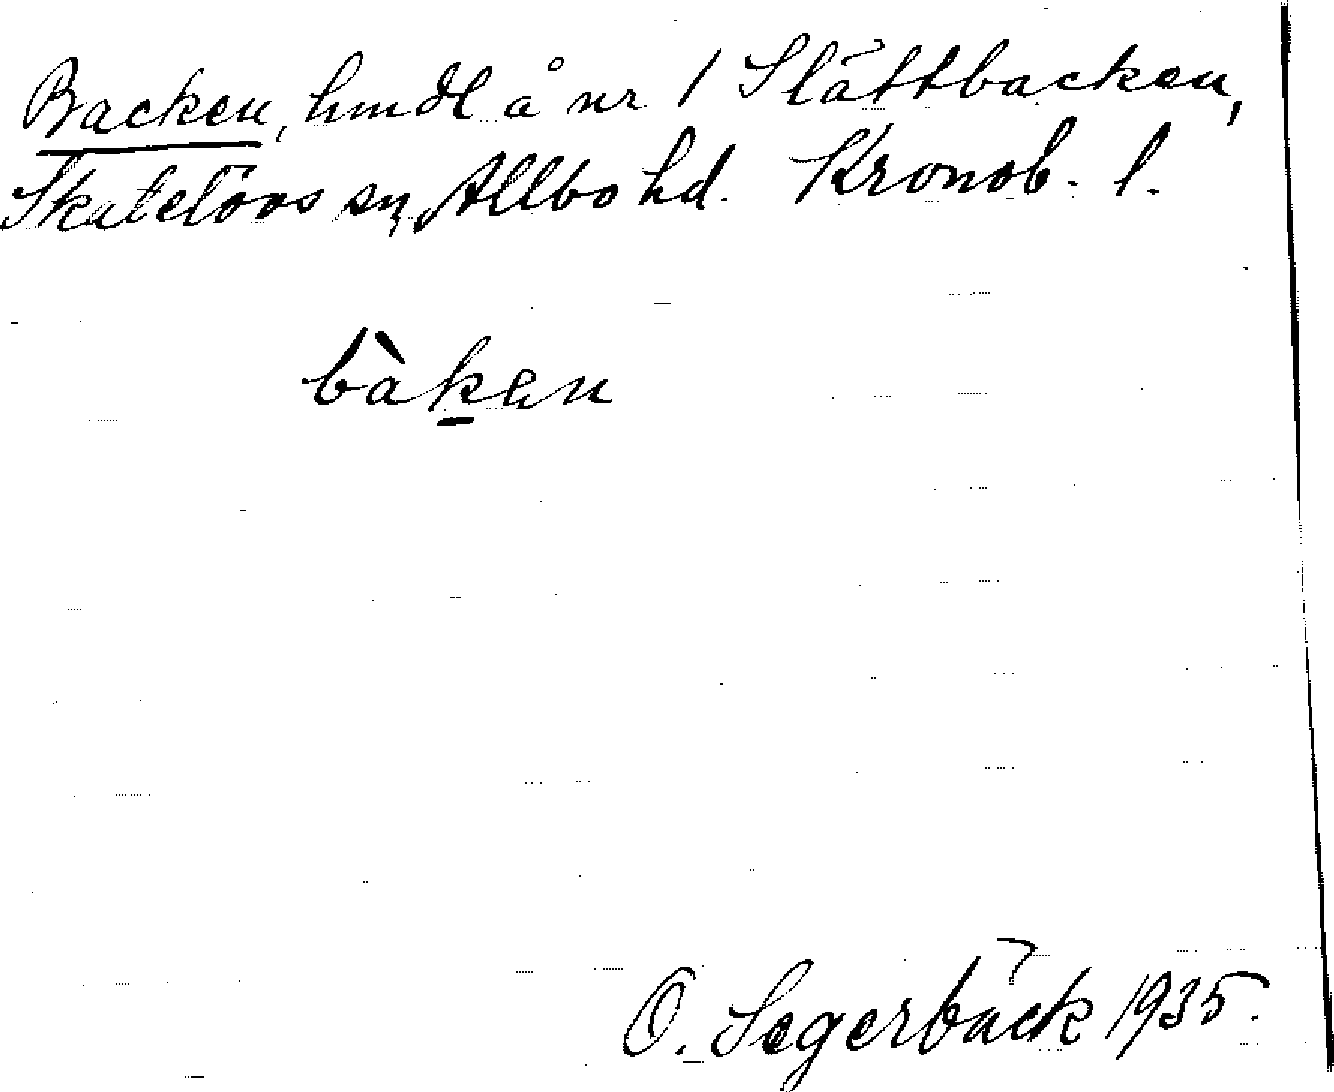 Backen, hmdl å nr 1 Slättbacken,
Skatelövs sn, Allbo hd. Kronob. l.
bàk̲en
O. Segerbäck 1935.